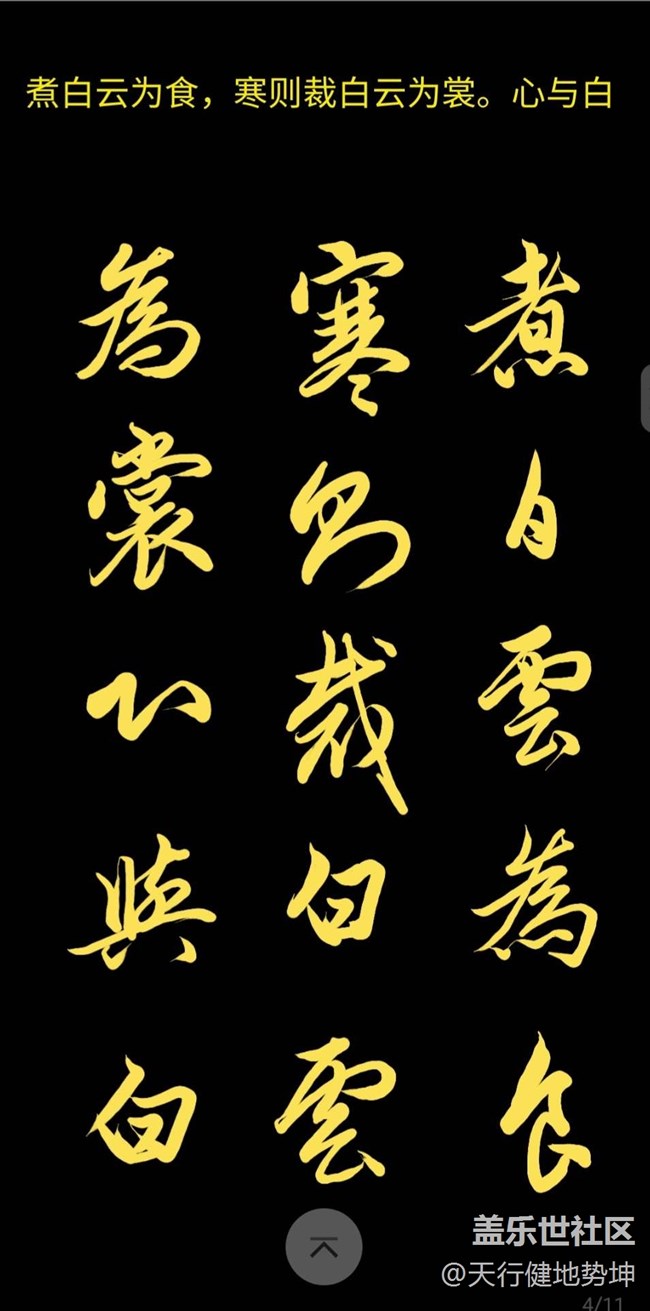 煮白云为食，寒则裁白云为裳。心与白
煮白雲為食
寒則裁白雲
為裳心與白
盖乐世社区
@天行健地势坤
4/11